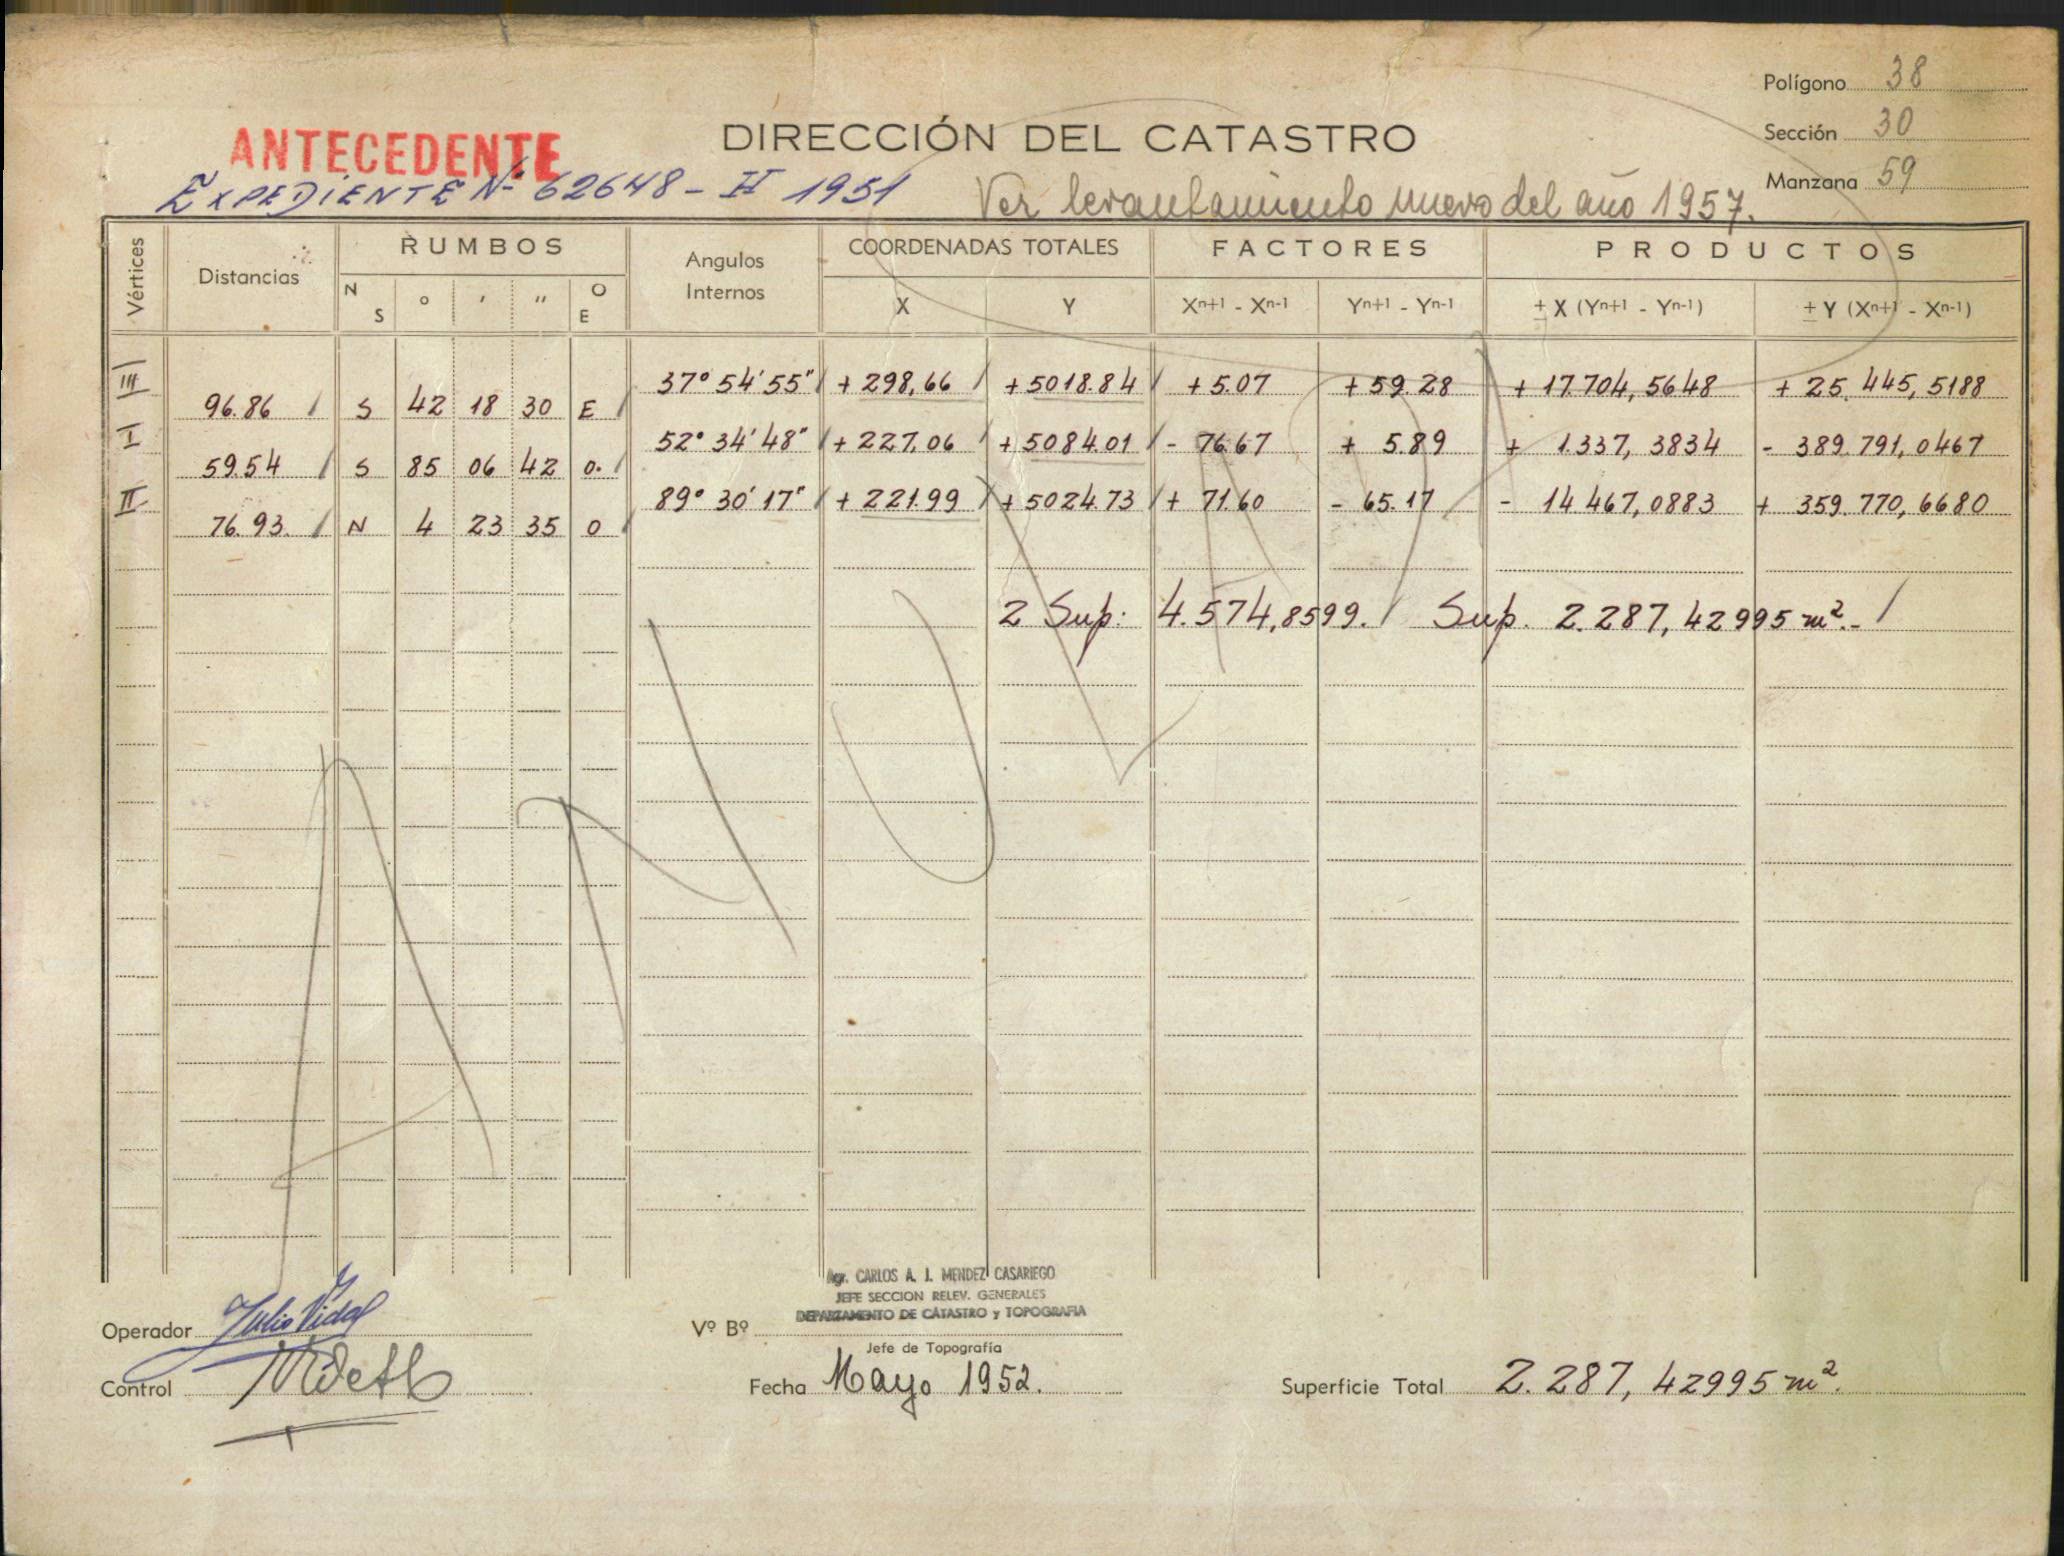 Polígono 38
ANTECEDENTE
DIRECCIÓN DEL CATASTRO
Sección 30
EXPEDIENTE Nº 62648 - H 1951
Ver levantamiento nuevo del año 1957.
Manzana 59
Vértices Distancias RUMBOS Angulos Internos COORDENADAS TOTALES FACTORES PRODUCTOS
N S ° ' " O E X Y Xn+1 - Xn-1 Yn+1 - Yn-1 ± X (Yn+1 - Yn-1) ± Y (Xn+1 - Xn-1)
III 37° 54' 55" + 298,66 + 5018.84 + 5.07 + 59.28 + 17.704,5648 + 25.445,5188
96.86 S 42 18 30 E
I 52° 34' 48" + 227.06 + 5084.01 - 76.67 + 5.89 + 1.337,3834 - 389.791,0467
59.54 S 85 06 42 O.
II 89° 30' 17" + 221.99 + 5024.73 + 71.60 - 65.17 - 14467,0883 + 359.770,6680
76.93. N 4 23 35 O
2 Sup: 4.574,8599. Sup. 2.287,42995 m².-
Agr. CARLOS A. J. MENDEZ CASARIEGO
JEFE SECCION RELEV. GENERALES
DEPARTAMENTO DE CATASTRO y TOPOGRAFIA
Operador Julio Vidal
Vº Bº
Jefe de Topografía
Control
Fecha Mayo 1952.
Superficie Total 2.287,42995 m².